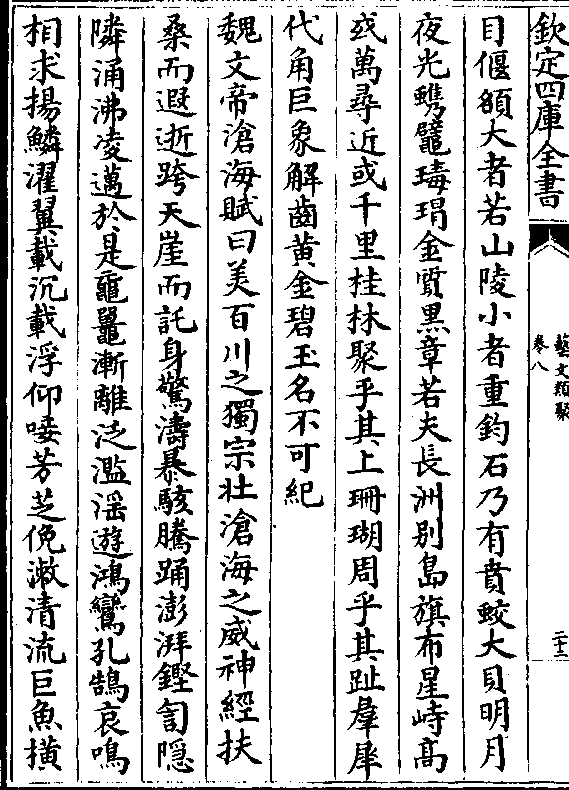 欽定四庫全書
藝文類聚
卷八
二十二
目偃額大者若山陵小者重鈞石乃有賁蛟大貝明月
夜光蠵鼊瑇瑁金質黒章若夫長洲别島旗布星峙髙
或萬尋近或千里桂林聚乎其上珊瑚周乎其趾羣犀
代角巨象解齒黄金碧玉名不可紀
魏文帝滄海賦曰美百川之獨宗壯滄海之威神經扶
桑而遐逝跨天崖而託身驚濤暴駭騰踊澎湃鏗訇隠
隣涌沸凌邁於是黿鼉漸離泛濫淫遊鴻鸞孔鵠哀鳴
相求揚鱗濯翼載沉載浮仰唼芳芝俛潄清流巨魚橫